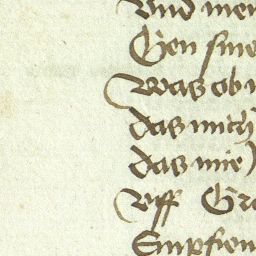 Vnd men
Gen sine
Was ob
das mich
das mir
Vff Gra
Empfien